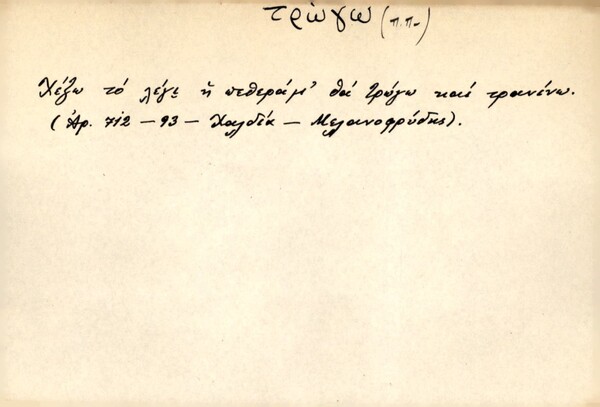 τρώγω (π.π.)
Χέζω τό λέγε ἡ πεθεράμ' θά τρώγω καί τρανένω.
(Ἀρ. 712 – 93 – Χαλδία – Μελανοφρύδης).